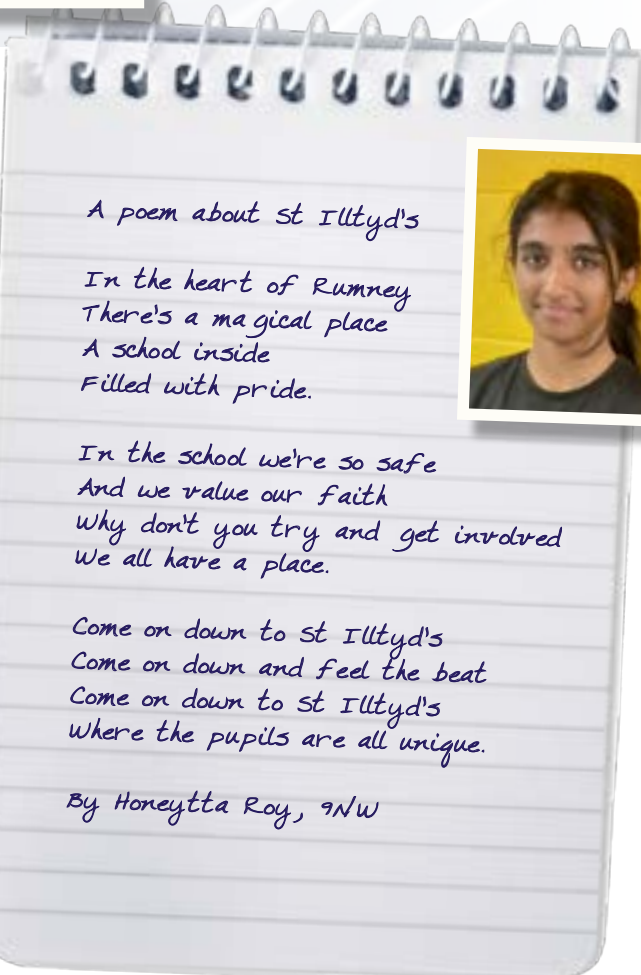 A poem about St Illtyd's
In the heart of Rumney
There's a magical place
A school inside
Filled with pride.
In the school we're so safe
And we value our faith
Why don't you try and get involved
We all have a place.
Come on down to St Illtyd's
Come on down and feel the beat
Come on down to St Illtyd's
Where the pupils are all unique.
By Honeytta Roy, 9NW